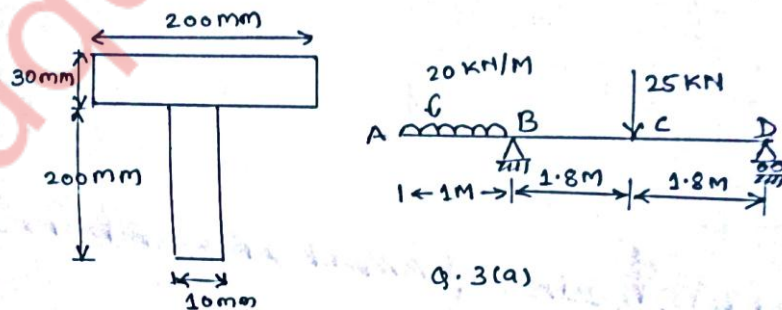 200mm
30mm
200mm
10mm
20 KN/M
25 KN
A
B
C
D
1M
1.8M
1.8M
Q. 3(a)